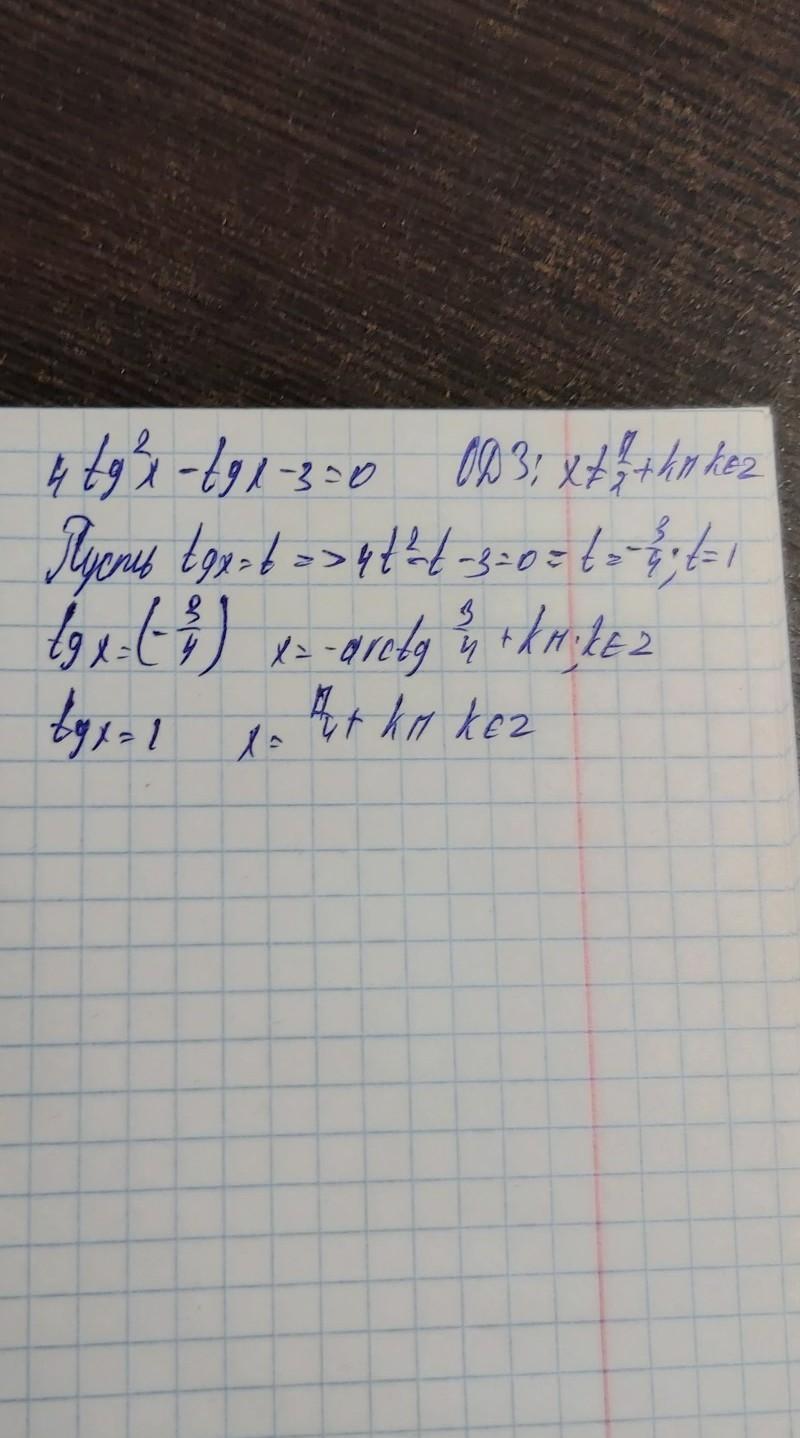 4 tg²x - tgx - 3 = 0 ОДЗ: x ≠ π/2 + kπ k∈z
Пусть tgx = t => 4t² - t - 3 = 0 = t = -3/4; t = 1
tgx = (-3/4) x = -arctg 3/4 + kπ; k∈z
tgx = 1 x = π/4 + kπ k∈z